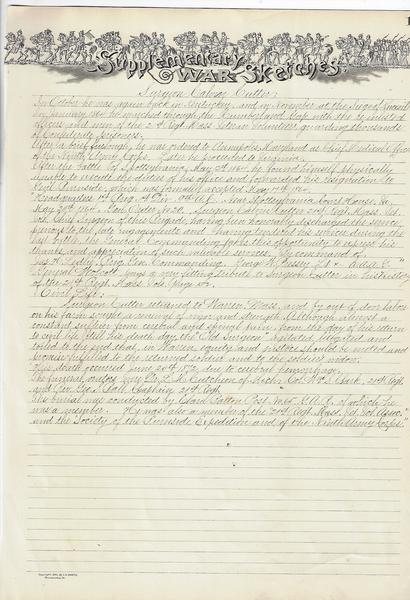 Supplementary
War Sketches.
Surgeon Calvin Cutter:
In October he was again back in Kentucky, and in November at the Siege of Knoxville
In January 1864 he marched through the Cumberland Gap with the re-enlisted
officers and men of the 21st Regt. Mass. Veteran Volunteers guarding thousands
of Confederate prisoners.
After a brief furlough, he was ordered to Annapolis Maryland as Chief Medical Officer
of the Ninth Army Corps. Later he proceeded to Virginia.
After the battle of Spottsylvania, May 1864, he found himself physically
unable to execute the duties of his office and forwarded his resignation to
Genl. Burnside, which was formally accepted May 1864.
Headquarters 1st Brig. 1st Div. 9th A.C. Near Spottsylvania Court House, Va.
May 1864. Gen. Order No. Surgeon Calvin Cutter 21st Regt. Mass. Vet.
Vols. Chief Surgeon of this Brigade, having been honorably discharged the service
previous to the late engagements and having rendered his services during the
last battle, the General Commanding takes this opportunity to express his
thanks and appreciation of such valuable services. By command of
Brig. Gen. Commanding. A.A.A.G."
General Walcott pays a very fitting tribute to Surgeon Cutter in his history
of the 21st Regt. Mass. Vols. Page
Civil Life:
Surgeon Cutter returned to Warren Mass. and by out of door labor
on his farm sought a renewal of vigor and strength. Although almost a
constant sufferer from cerebral and spinal pain, from the day of his return
to civil life, till his death day, the "Old Surgeon" agitated, legislated and
toiled to the end that, in Nation, equity and justice should be meted and
promise fulfilled to the returned soldier and to the soldier's widow.
His death occurred June 20th 1872, due to cerebral hemorrhage.
The funeral orators were Dr. L. M. Cutcheon of Mich., Col. W. S. Clark, 21st Regt.
and Rev. Geo. S. Ball, Chaplain 21st Regt.
His burial was conducted by Clara Barton Post No. 65 G.A.R. of which he
was a member. He was also a member of the 21st Regt. Mass. Vet. Vol. Assoc.
and the Society of the Burnside Expedition and of the Ninth Army Corps."